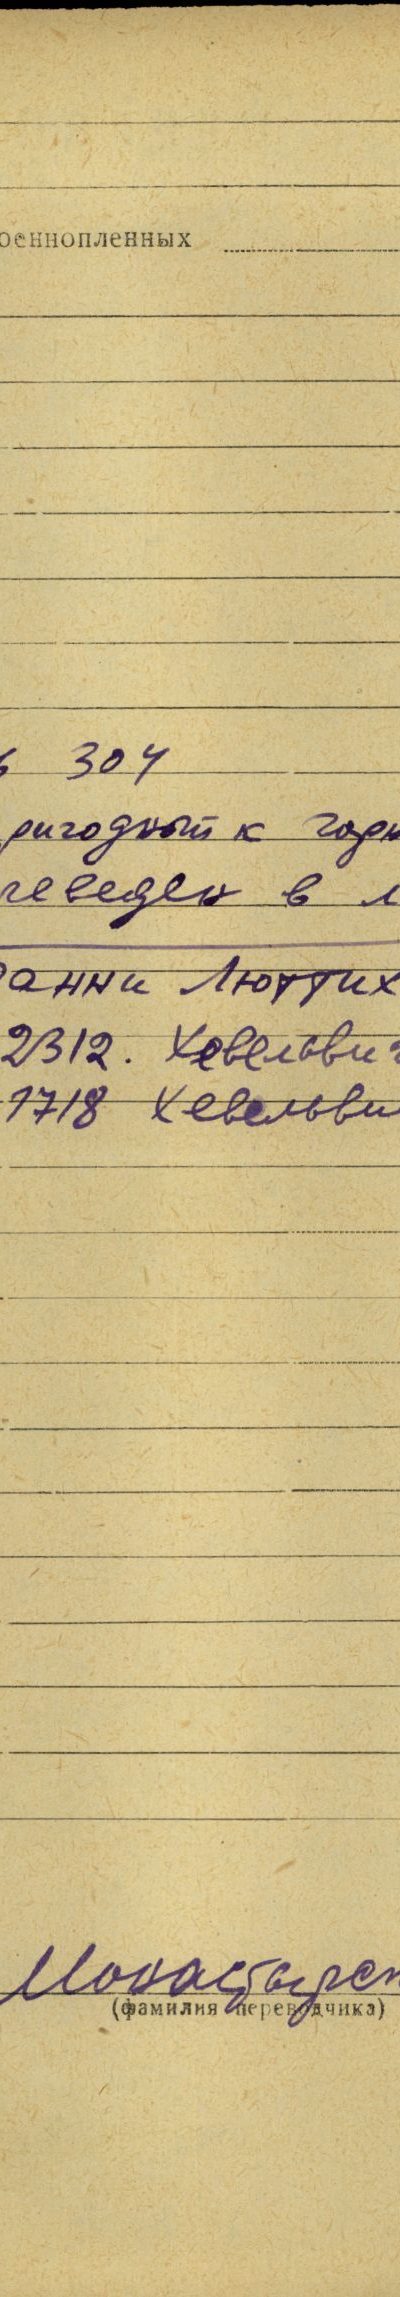 оеннопленных
304
ригодный к горн
реведен в л
анни Люттих
2312. Хевельви
1718 Хевельви
Монастырск
(фамилия переводчика)